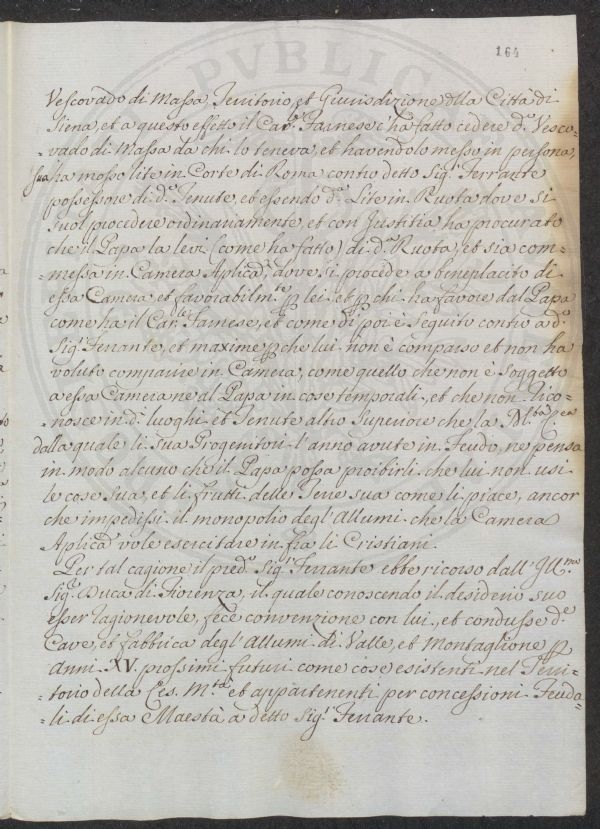 164
Vescovado di Massa, Territorio, et Giurisdizione della Città di
Siena, et a questo effetto il Car.le Farnese s' ha fatto cedere d.o Vesco-
-vado di Massa da chi lo teneva, et havendolo messo in persona
sua ha mosso lite in Corte di Roma contro detto Sig.r Ferrante
possessore di d.e Tenute, et essendo d.a Lite in Ruota dove si
suol procedere ordinariamente, et con Justitia ha procurato
che il Papa la levi (come ha fatto) di d.a Ruota, et sia com-
-messa in Camera Aplica, dove si procede a beneplacito di
essa Camera et favorabilm.te p lei et p chi ha favore dal Papa
come ha il Car.le Farnese, et come di poi è seguito contro a d.o
Sig.r Ferrante, et maxime p che lui non è comparso et non ha
voluto comparire in Camera, come quello che non è soggetto
a essa Camera ne al Papa in cose temporali, et che non rico-
-nosce in d.i luoghi et Tenute altro Superiore che la M.tà C.ea
dalla quale li sua Progenitori l' anno avute in Feudo, ne pensa
in modo alcuno che il Papa possa proibirli che lui non usi
le cose sua, et li frutti delle Terre sua come li piace, ancor
che impedissi il monopolio degl' Allumi che la Camera
Aplica vole esercitare in fra li Cristiani.
Per tal cagione il pred.o Sig.r Ferrante ebbe ricorso dall' Ill.mo
Sig.r Duca di Fiorenza, il quale conoscendo il desiderio suo
esser ragionevole, fece convenzione con lui, et condusse d.e
Cave, et fabbrica degl' Allumi di Valle, et Montaglione p
Anni XV. prossimi futuri come cose esistenti nel Terri-
-torio della Ces. M.tà et appartenenti per concessioni Feuda-
-li di essa Maestà a detto Sig.r Ferrante.
PVBLICA